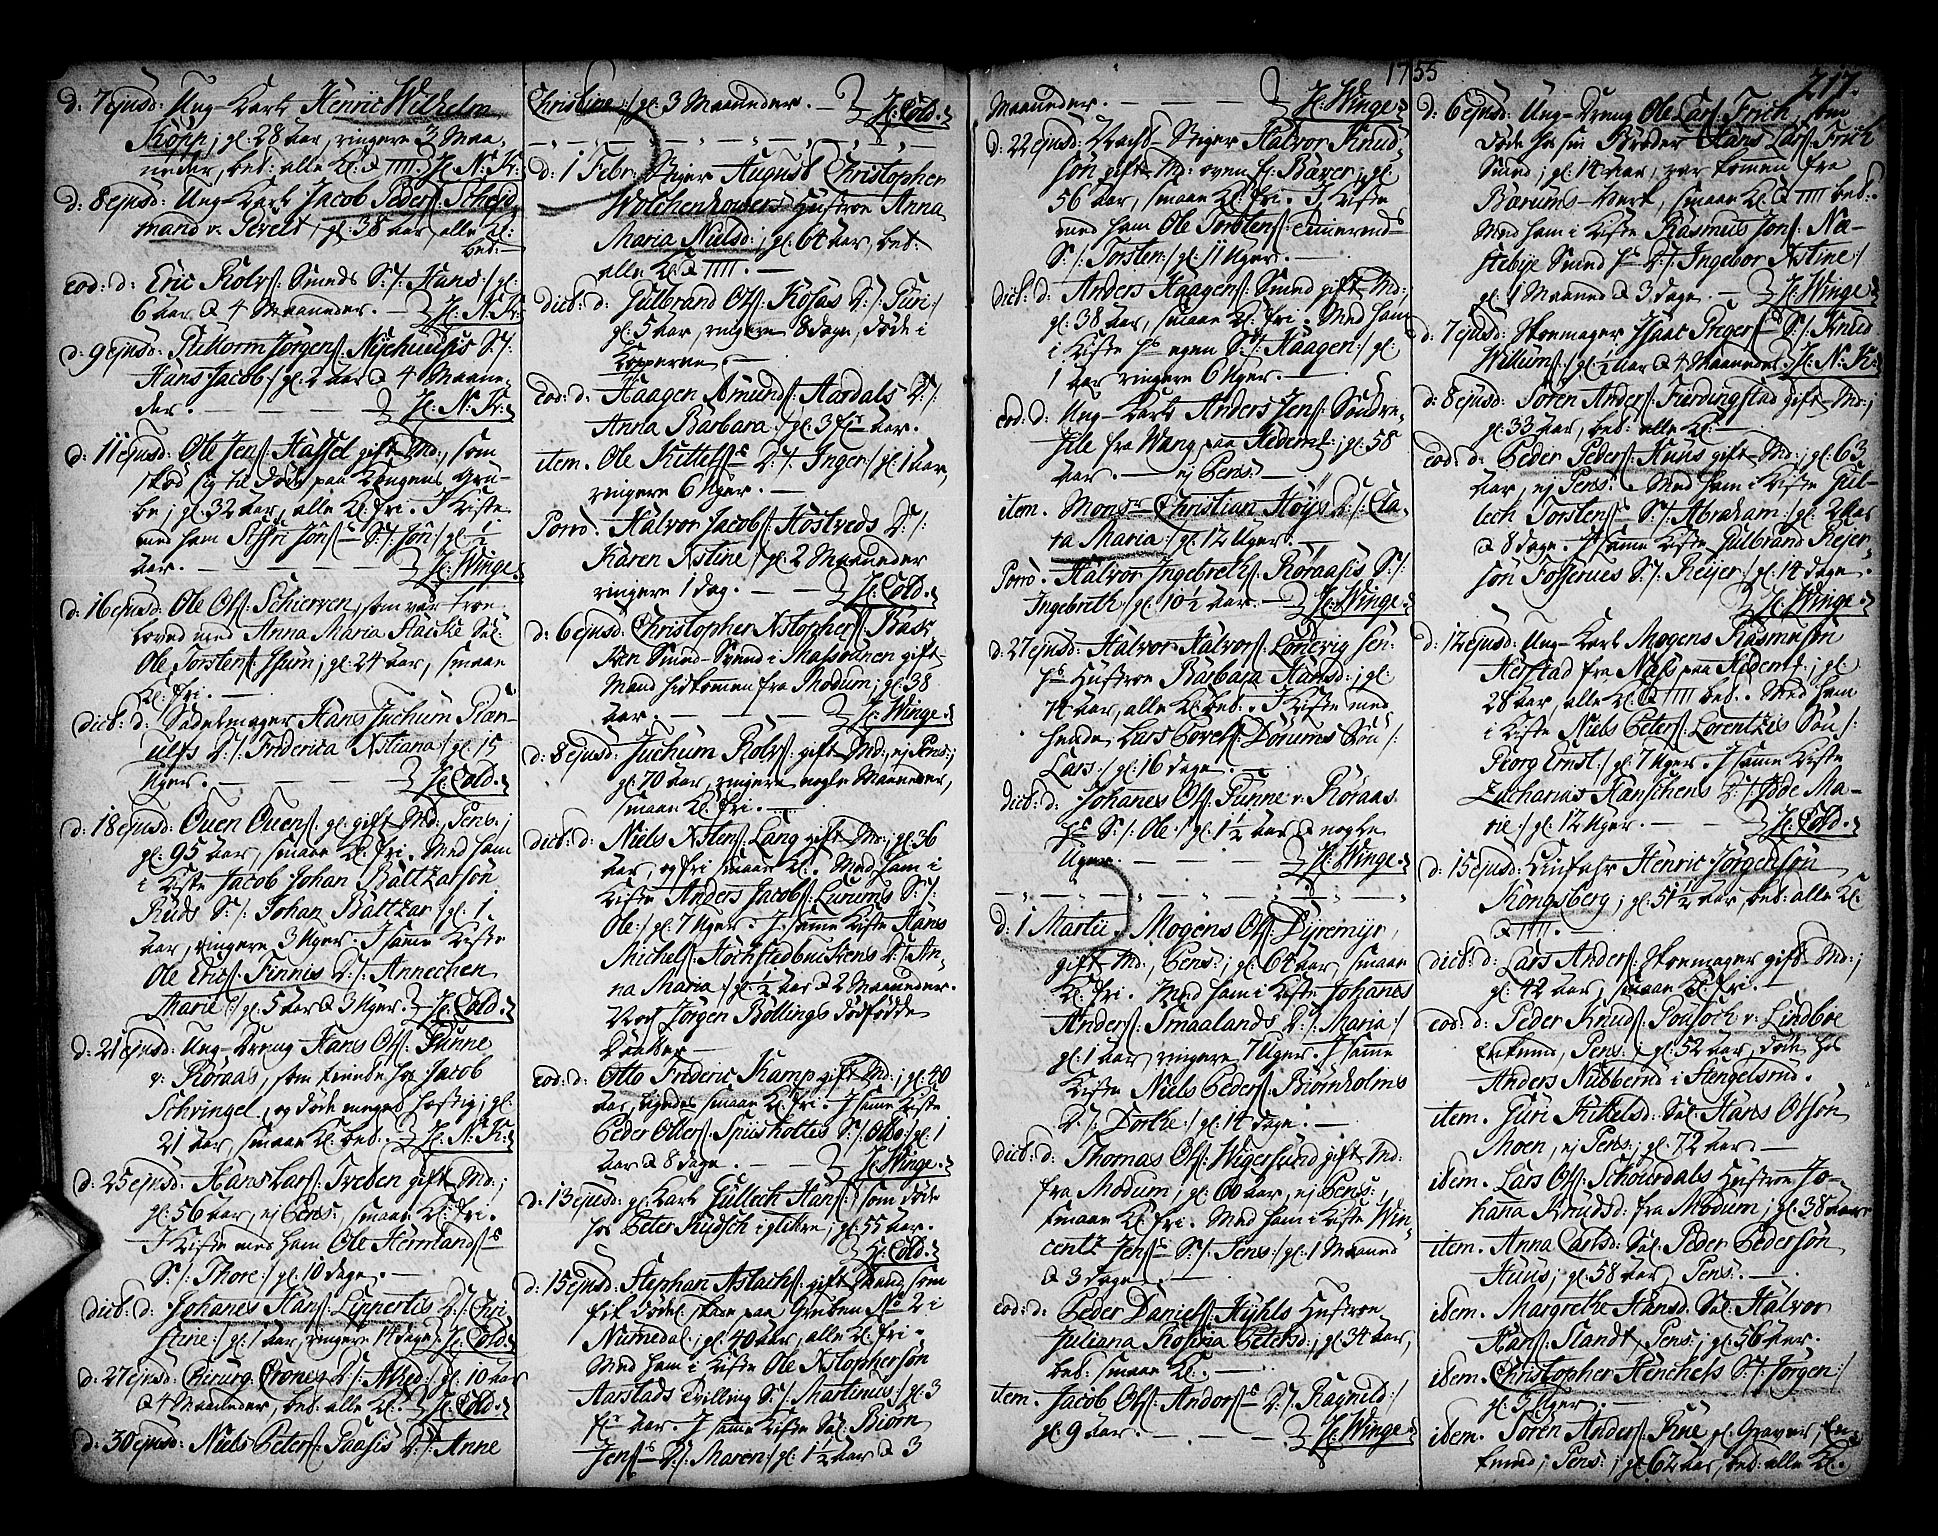 d: 7 ejusd: Ung-Karl Henric Wilhelm
Köpp; gl: 28 Aar, ringere 3 Maa-
neder, bet: alle Kl: à IIII. H: N: Kr:
d: 8 ejusd: Ung-Karl Jacob Peders:
mand v. gl: 38 Aar, alle Kl:
bet:
eod: d: Eric Rolvs: Smeds S:/: Hans:/ gl:
6 Aar à 4 Maaneder. — H: N: Kr:
d: 9 ejusd: Jörgens: Nyehuusis S:/:
Hans Jacob:/ gl: 2 Aar à 4 Maane-
der. — — — H: N: Kr:
d: 11 ejusd: Ole Jens: Hassel gift Md:, som
skød sig til døde paa Kongens Gru-
be; gl: 32 Aar, alle Kl: fri. I Kiste
med ham Jöns: S:/: Jön:/ gl: 1
Aar. — — — H: Winge.
d: 16 ejusd: Ole Ols: Schierven, som var troe-
loved med Anna Maria Sal:
Ole Torstens: gl: 24 Aar, smaae
Kl: fri. —
dict: d: Sadelmager Hans Juchum
D:/: Friderica Xstiana:/ gl: 15
Uger. — — — H: Cold.
d: 18 ejusd: Ouen Ouens: gl: gift Md: Pens:;
gl: 95 Aar, smaae Kl: fri. Med ham
i Kiste Jacob Johan Baltzarsön
Ruds S:/: Johan Baltzar:/ gl: 1
Aar, ringere 3 Uger. I samme Kiste
Ole Erics: Finnis D:/: Annechen
Marie:/ gl: 5 Aar à 3 Uger. H: Cold.
d: 21 ejusd: Ung-Dreng Hans Ols: Funne
v. Röraas, som tiente hos Jacob
Schringel, og døde meget hastig; gl:
21 Aar, smaae Kl: bet:. H: N: K:
d: 25 ejusd: Hans Lars: Treden gift Md:;
gl: 56 Aar, ej Pens:, smaae Kl: fri.
I Kiste med ham Ole Hermands:
S:/: Thore:/ gl: 10 dage. —
dict: d: Johanes Hans: Lippertis D:/: Chri-
stine:/ gl: 1 Aar, ringere 14 dage. H: Cold.
d: 27 ejusd: Chirurg: Crones D:/: gl: 10 Aar
à 4 Maaneder, bet: alle Kl:. H: Cold.
d: 30 ejusd: Niels Peters: Paasis D:/: Anne
Christine:/ gl: 3 Maaneder. — H: Cold.
d: 1 Febr: Stiger August Christopher
Wolchenhowers Hustroe Anna
Maria Nielsd:; gl: 64 Aar, bet:
alle Kl: à IIII. —
dict: d: Gulbrand Ols: Kosas D:/: Guri:/
gl: 5 Aar, ringere 8 dage, døde i
Kopperne. —
eod: d: Haagen Amunds: Aardals D:/:
Anna Barbara:/ gl: 3 fi: Aar.
item. Ole Kittels: D:/: Inger:/ gl: 1 Aar,
ringere 6 Uger. —
Porro. Halvor Jacobs: Kostveds D:/:
Karen Xstine:/ gl: 2 Maaneder
ringere 1 dag. — — H: Cold.
d: 6 ejusd: Christopher Xstophers:
Smed-Svend i Masovnen gift
Mand hidkommen fra Modum; gl: 38
Aar. — — — H: Winge.
d: 8 ejusd: Juchum Rolvs: gift Md: ej Pens:;
gl: 70 Aar, ringere nogle Maaneder,
smaae Kl: fri. —
dict: d: Niels Xstens: Lang gift Md:; gl: 36
Aar, og fri smaae Kl:. Med ham i
Kiste Anders Jacobs: Lurums S:/:
Ole:/ gl: 7 Uger. I samme Kiste Hans
Michels: D:/: An-
na Maria:/ gl: ½ Aar à 2 Maaneder.
Nok Jörgen Böllings dødfødde
Daatter. —
eod: d: Otto Frideric Kamp gift Md:; gl: 40
Aar, smaae Kl: fri. I samme Kiste
Peder Otters: S:/: Otto:/ gl: 1
Aar à 8 dage. — — H: Winge.
d: 13 ejusd: gl: Karl Gullich Hans: som døde
hos Peter Kusch gl: 55 Aar.
H: Cold.
d: 15 ejusd: Stephan Aslachs: gift Mand, som
fik dødel: skade paa Gruben No: 2 i
Numedal; gl: 40 Aar, alle Kl: fri.
Med ham i Kiste Ole Xstophersön
Aarstads Tvilling S:/: Martinus:/ gl: 3
fi: Aar. I samme Kiste Sal: Biörn
Jens: D:/: Maren:/ gl: 1½ Aar à 3
1755
217.
Maaneder. — — — H: Winge.
d: 22 ejusd: Stiger Halvor Knud-
sön gift Md: oven fj: Bæver; gl:
56 Aar, smaae Kl: fri. I Kiste
med ham Ole Torstens:
S:/: Torsten:/ gl: 11 Uger. —
dict: d: Anders Haagens: Smed gift Md:,
gl: 38 Aar, smaae Kl: fri. Med ham
i Kiste hs: egen S:/: Haagen:/ gl:
1 Aar ringere 6 Uger. —
eod: d: Ung-Karl Anders Jens: Söndre-
Ile fra Wang paa Hedem:; gl: 58
Aar. — ej Pens: —
item. Monsr: Christian Höijs D:/: Cla-
ra Maria:/ gl: 12 Uger. —
Porro. Halvor Ingebreths: Röraasis S:/:
Ingebreth:/ gl: 10½ Aar. — H: Winge.
d: 27 ejusd: Halvor Halvors: Sen:
hs: Hustroe Barbara Hansd:; gl:
74 Aar, alle Kl: bet:. I Kiste med
hende, Lars Povels: Dorums Sön:/:
Lars:/ gl: 16 dage. —
dict: d: Johanes Ols: Funne v. Röraas
hs: S:/: Ole:/ gl: 1½ Aar à nogle
Uger. — — — H: Winge.
d: 1 Martii. Mogens Ols: Dyremyr,
gift Md:, Pens:; gl: 64 Aar, smaae
Kl: fri. Med ham i Kiste Johanes
Anders: Smaalands D:/: Maria:/
gl: 1 Aar, ringere 7 Uger. I samme
Kiste Niels Peders: Biörnholms
D:/: Dorthe:/ gl: 14 dage. —
dict: d: Thomas Ols: Wigersund gift Md:
fra Modum; gl: 60 Aar, ej Pens:,
smaae Kl: fri. Med ham i Kiste Win-
centz Jens: S:/: Jens:/ gl: 1 Maaned
à 3 dage. —
eod: d: Peder Daniels: Kyhls Hustroe
Juliana Rosina Petersd:; gl: 34 Aar,
bet: smaae Kl: —
item. Jacob Ols: Andors: D:/: Ragnild:/
gl: 9 Aar. — — — H: Winge.
d: 6 ejusd: Ung-Dreng Ole Lars: Frich, som
døde hos sin Broder Hans Lars: Frich
Smed; gl: 14 Aar, var kommen fra
Bærums-Verk, smaae Kl: à IIII bet:.
Med ham i Kiste Rasmus Jons: Næ-
stebye Smed hs: D:/: Ingebor Xstine:/
gl: 1 Maaned à 3 dage. — H: Winge.
d: 7 ejusd: Skoemager Isaac S:/: Knud
Willum:/ gl: ½ Aar à 4 Maaneder. H: N: K:
d: 8 ejusd: Sören Anders: Furdingstad gift Md:;
gl: 33 Aar, bet: alle Kl: —
eod: d: Peder Peders: Huus gift Md:; gl: 63
Aar, ej Pens:. Med ham i Kiste Gul-
lech Torstens: S:/: Abraham:/ gl: 2 Aar
à 8 dage. I samme Kiste Gulbrand Reier-
sön Fosserues S:/: Reijer:/ gl: 14 dage.
H: Winge.
d: 12 ejusd: Ung-Karl Mogens Rasmusön
Herstad fra Næss paa Hedem:; gl:
28 Aar, alle Kl: à IIII bet:. Med ham
i Kiste Niels Peters: Lorentzis Sön:/:
Georg Ernst:/ gl: 7 Uger. I samme Kiste
Zacharias Hanschens D:/: Ide Ma-
rie:/ gl: 12 Uger. — — H: Cold.
d: 15 ejusd: Henric Jörgensön
Kongsberg; gl: 51½ Aar, bet: alle Kl:
à IIII. —
dict: d: Lars Anders: Skoemager gift Md:;
gl: 42 Aar, smaae Kl: fri. —
eod: d: Peder Knuds: v. Lindboe
Enkemd:, Pens:; gl: 52 Aar, døde hos
Anders Nubberud i Hengelsrud.
item. Guri Kittelsd: Sal: Hans Olsön
Moen, ej Pens:; gl: 72 Aar. —
idem. Lars Ols: Skouerdals Hustroe Jo-
hana Knudsd: fra Modum; gl: 38 Aar.
item. Anna Carlsd: Sal: Peder Pedersön
Huus; gl: 58 Aar, Pens:. —
idem. Margrethe Hansd: Sal: Halvor
Hans: Standt, Pens:; gl: 56 Aar.
idem. Christopher Henchels S:/: Jörgen:/
gl: 3 Uger. —
idem. Sören Anders: Fine gl: Graver, En-
kemd:; Pens:; gl: 62 Aar, bet: alle Kl: